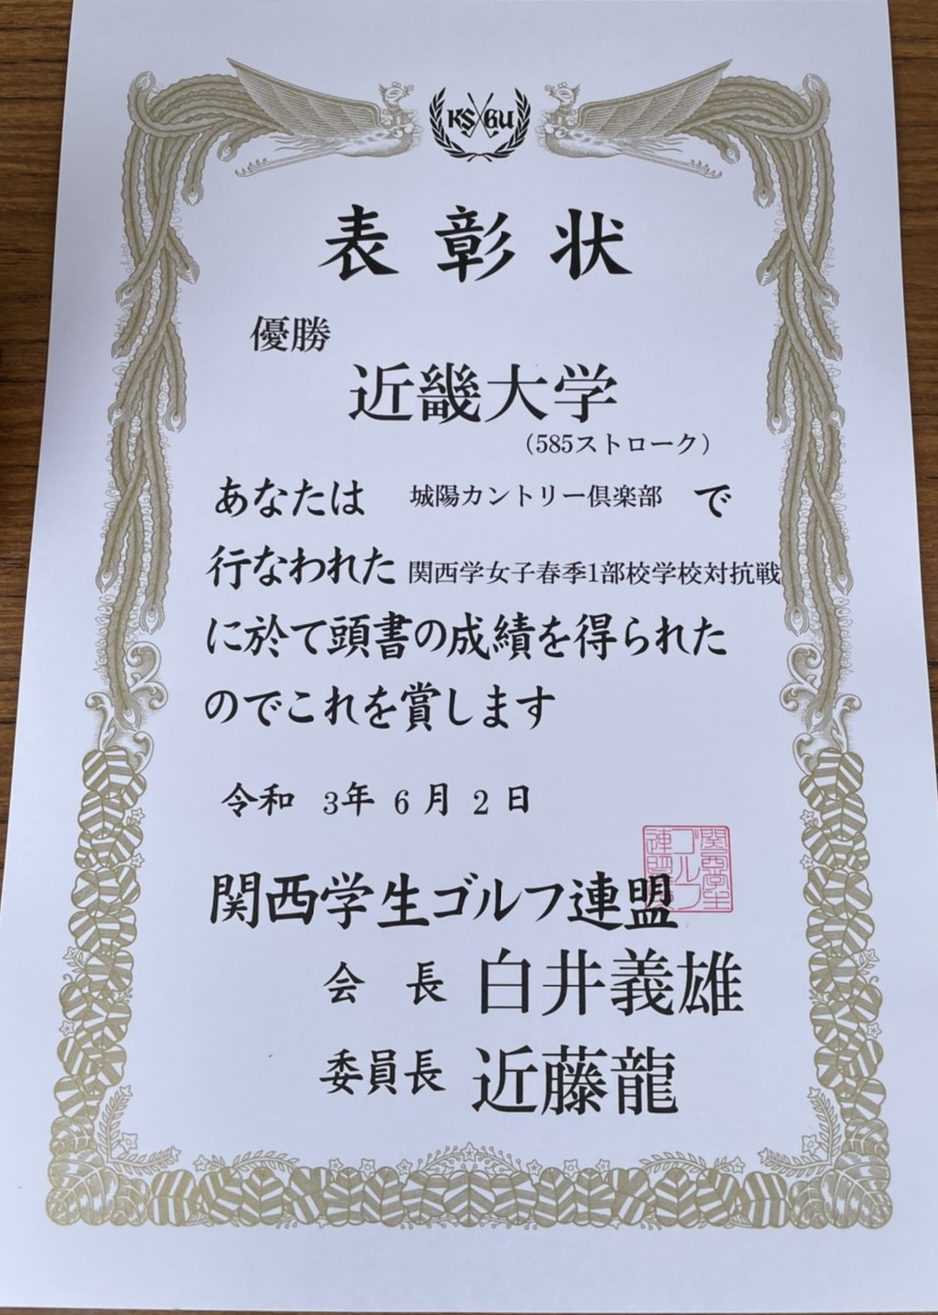 KSGU
表彰状
優勝
近畿大学
（585ストローク）
あなたは 城陽カントリー倶楽部 で
行なわれた 関西学女子春季1部校学校対抗戦
に於て頭書の成績を得られた
のでこれを賞します
令和 3年 6月 2日
関西学生ゴルフ連盟
会長 白井義雄
委員長 近藤龍